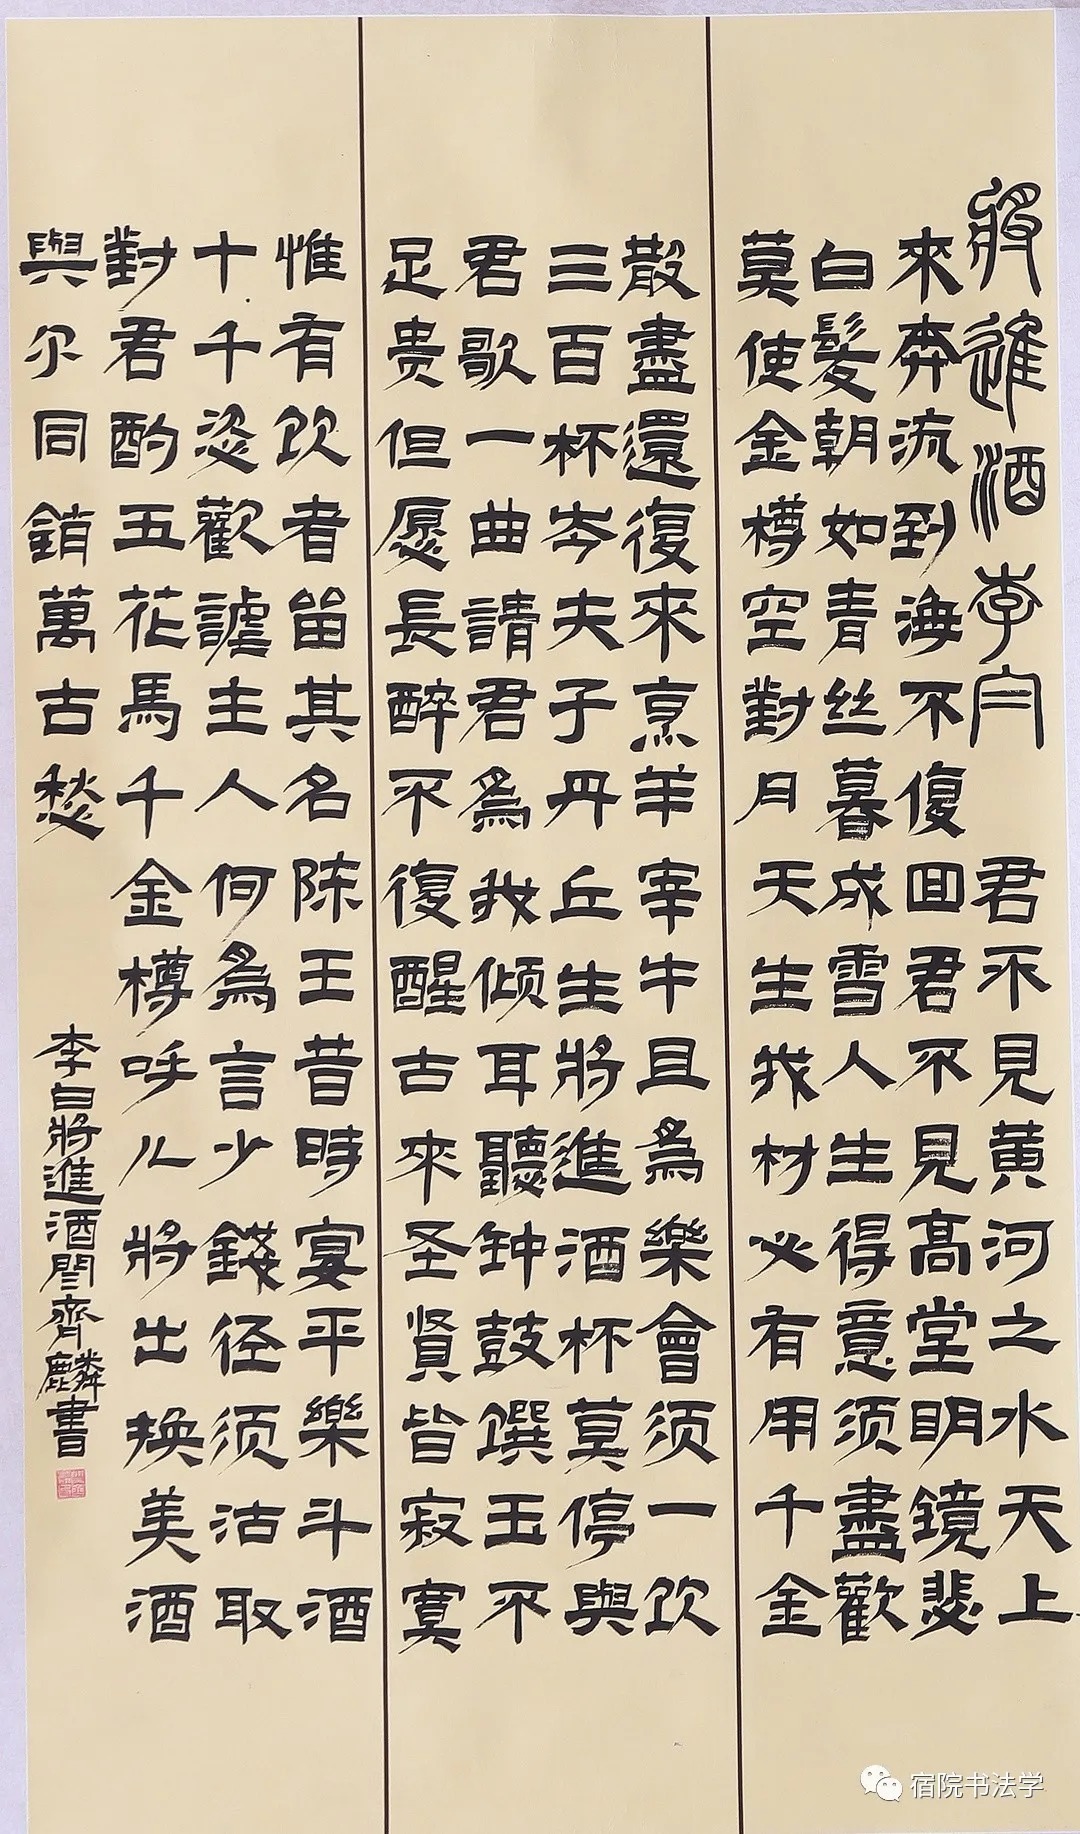 將進酒李白 君不見黄河之水天上
來奔流到海不復回君不見高堂明鏡悲
白髮朝如青丝暮成雪人生得意须盡歡
莫使金樽空對月天生我材必有用千金
散盡還復來烹羊宰牛且爲樂會须一饮
三百杯岑夫子丹丘生將進酒杯莫停與
君歌一曲請君爲我倾耳聽钟鼓馔玉不
足贵但愿長醉不復醒古來圣賢皆寂寞
惟有饮者留其名陈王昔時宴平樂斗酒
十千恣歡謔主人何爲言少錢径须沽取
對君酌五花馬千金樽呼儿將出换美酒
與尔同銷萬古愁
李白將進酒閆齊麟書
宿院书法学